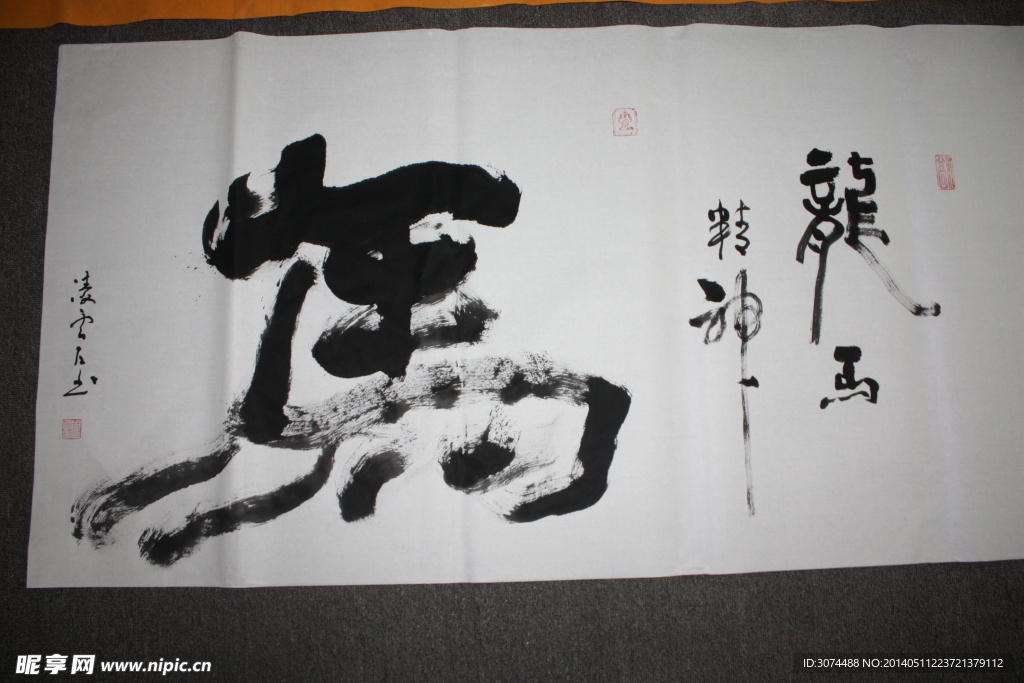 龍馬
精神
馬
昵享网 www.nipic.cn
ID:3074488 NO:20140511223721379112